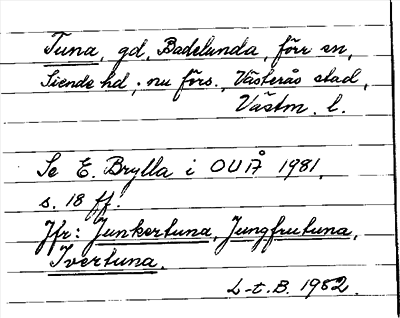 Tuna, gd, Badelunda, förr en,
Siende hd, nu förs., Västerås stad,
Västm. l.
Se E. Brylla i OUÅ 1981,
s. 18 ff.
Jfr: Junkertuna, Jungfrutuna,
Ivertuna.
L-t. B. 1982.